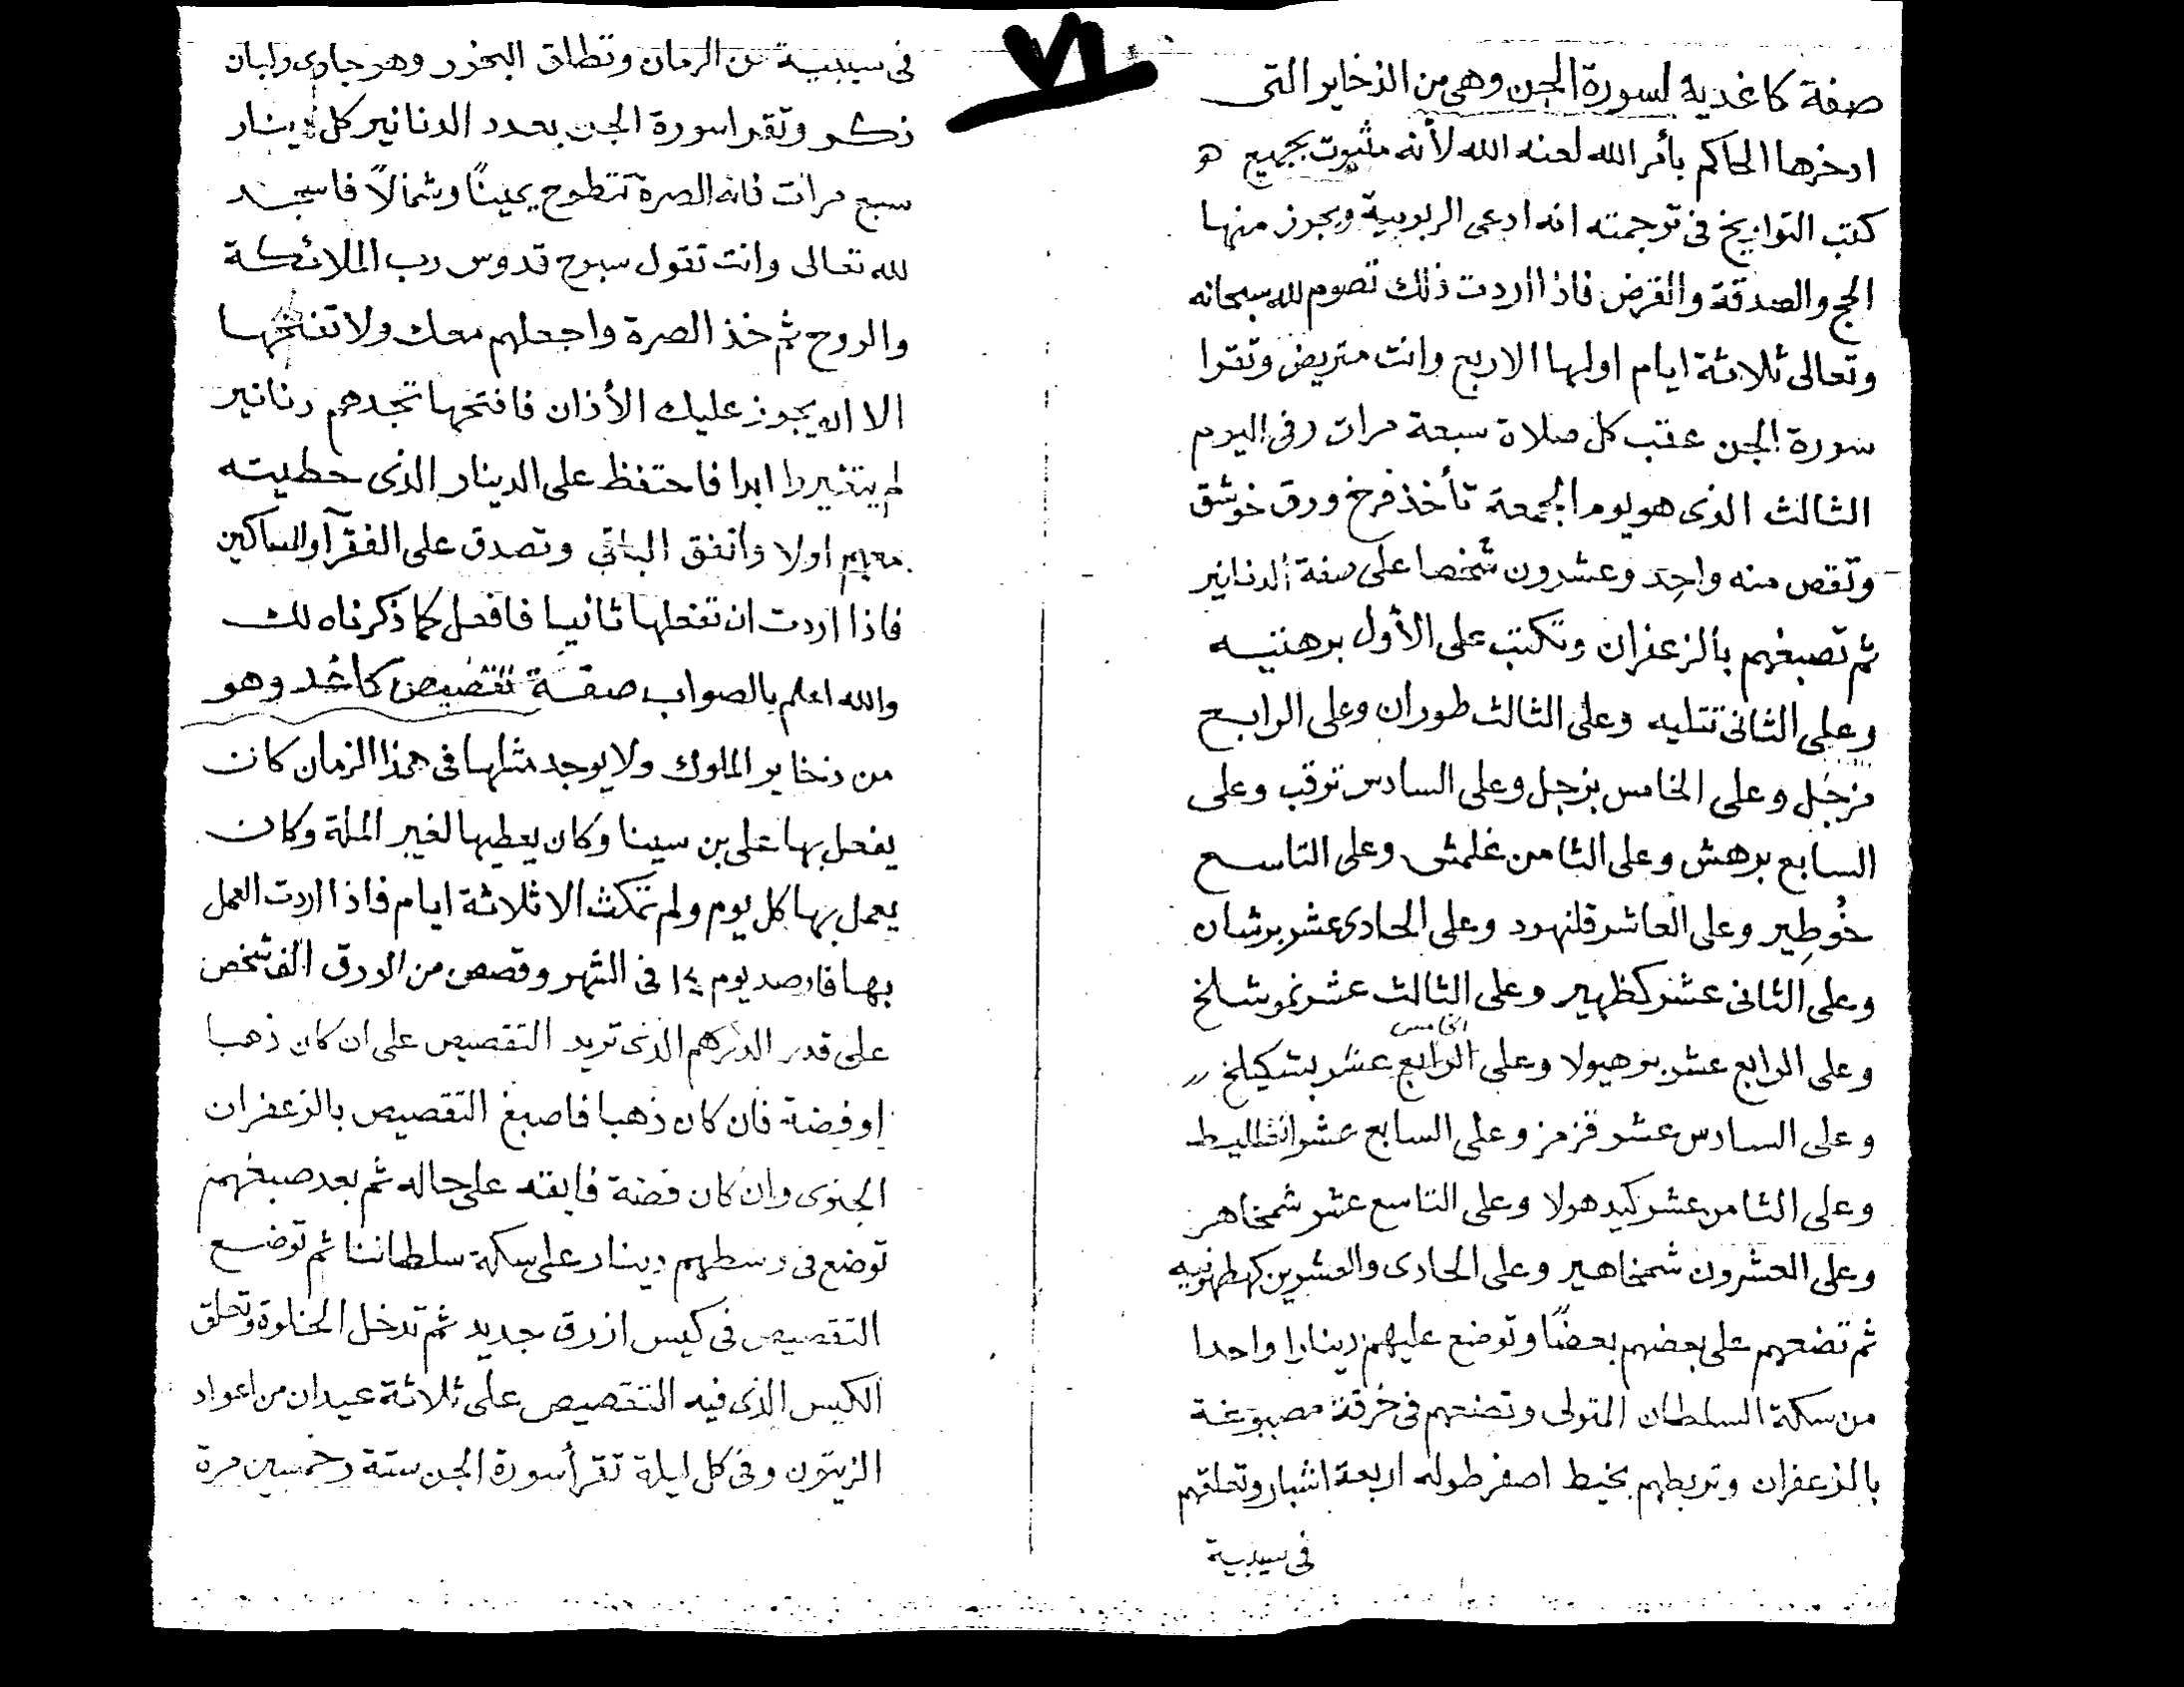 ٧١
صفة كاغدية لسورة الجن وهى من الذخاير التى
ادخرها الحاكم بأمر الله لعنه الله لأنه مثبوت بجميع
كتب التواريخ فى ترجمته انه ادعى الربوبية ويجوز منها
الحج والصدقة والقرض فاذا اردت ذلك تصوم لله سبحانه
وتعالى ثلاثة ايام اولها الاربع وانت متريض وتقرا
سورة الجن عقب كل صلاة سبعة مرات وفى اليوم
الثالث الذى هو يوم الجمعة تأخذ فرخ ورق خوشق
وتقص منه واحِد وعشرون شخصا على صفة الدنانير
ثم تصبغهم بالزعفران وتكتب على الأول برهتيه
وعلى الثانى تتليه وعلى الثالث طوران وعلى الرابع
مزجل وعلى الخامس بزجل وعلى السادس ترقب وعلى
السابع برهش وعلى الثامن غلمش وعلى التاسع
خُوطِير وعلى العاشر قلنهود وعلى الحادى عشر برشان
وعلى الثانى عشر كظهير وعلى الثالث عشر نموشلخ
الخامس
وعلى الرابع عشر برهيولا وعلى الرابع عشر بشكيلخ
وعلى السادس عشر قزمز وعلى السابع عشر انغلليط
وعلى الثامن عشر كيدهولا وعلى التاسع عشر شمخاهر
وعلى العشرون شمخاهير وعلى الحادى والعشرين كهطهونيه
ثم تضعهم على بعضهم بعضًا وتوضع عليهم دينارا واحدا
من سكة السلطان المتولى وتضعهم فى خرقة مصبوغة
بالزعفران وتربطهم بخيط اصفر طوله اربعة اشبار وتعلقهم
فى سيبية
فى سيبية من الرمان وتطلق البخور وهو جاوى ولبان
ذكر وتقرا سورة الجن بعدد الدنانير كل دينار
سبع مرات فان الصرة تتطوح يمينًا وشمالاً فاسجد
لله تعالى وانت تقول سبوح قدوس رب الملائكة
والروح ثم خذ الصرة واجعلهم معك ولا تفتحها
الا ان يجوز عليك الأذان فافتحها تجدهم دنانير
لم يتغيروا ابدا فاحتفظ على الدينار الذى حطيته
معهم اولا وانفق الباقى وتصدق على الفقرآ والمساكين
فاذا اردت ان تفعلها ثانيا فافعل كما ذكرناه لك
والله اعلم بالصواب صفة تقصيص كاغد وهو
من دخاير الملوك ولا يوجد مثلها فى هذا الزمان كان
يفعل بها على بن سينا وكان يعطيها لغير الملة وكان
يعمل بها كل يوم ولم تمكث الا ثلاثة ايام فاذا اردت العمل
بها فارصد يوم ١٤ فى الشهر وقصص من الورق الف شخص
على قدر الدرهم الذى تريد التقصيص على ان كان ذهبا
او فضة فان كان ذهبا فاصبغ التقصيص بالزعفران
الجنوى وان كان فضة فابقه على حاله ثم بعد صبغهم
توضع فى وسطهم دينار على سكة سلطاننا ثم توضع
التقصيص فى كيس ازرق جديد ثم تدخل الخلوة وتعلق
الكيس الذى فيه التقصيص على ثلاثة عيدان من اعواد
الزيتون وفى كل ليلة تقرأ سورة الجن ستة وخمسين مرة